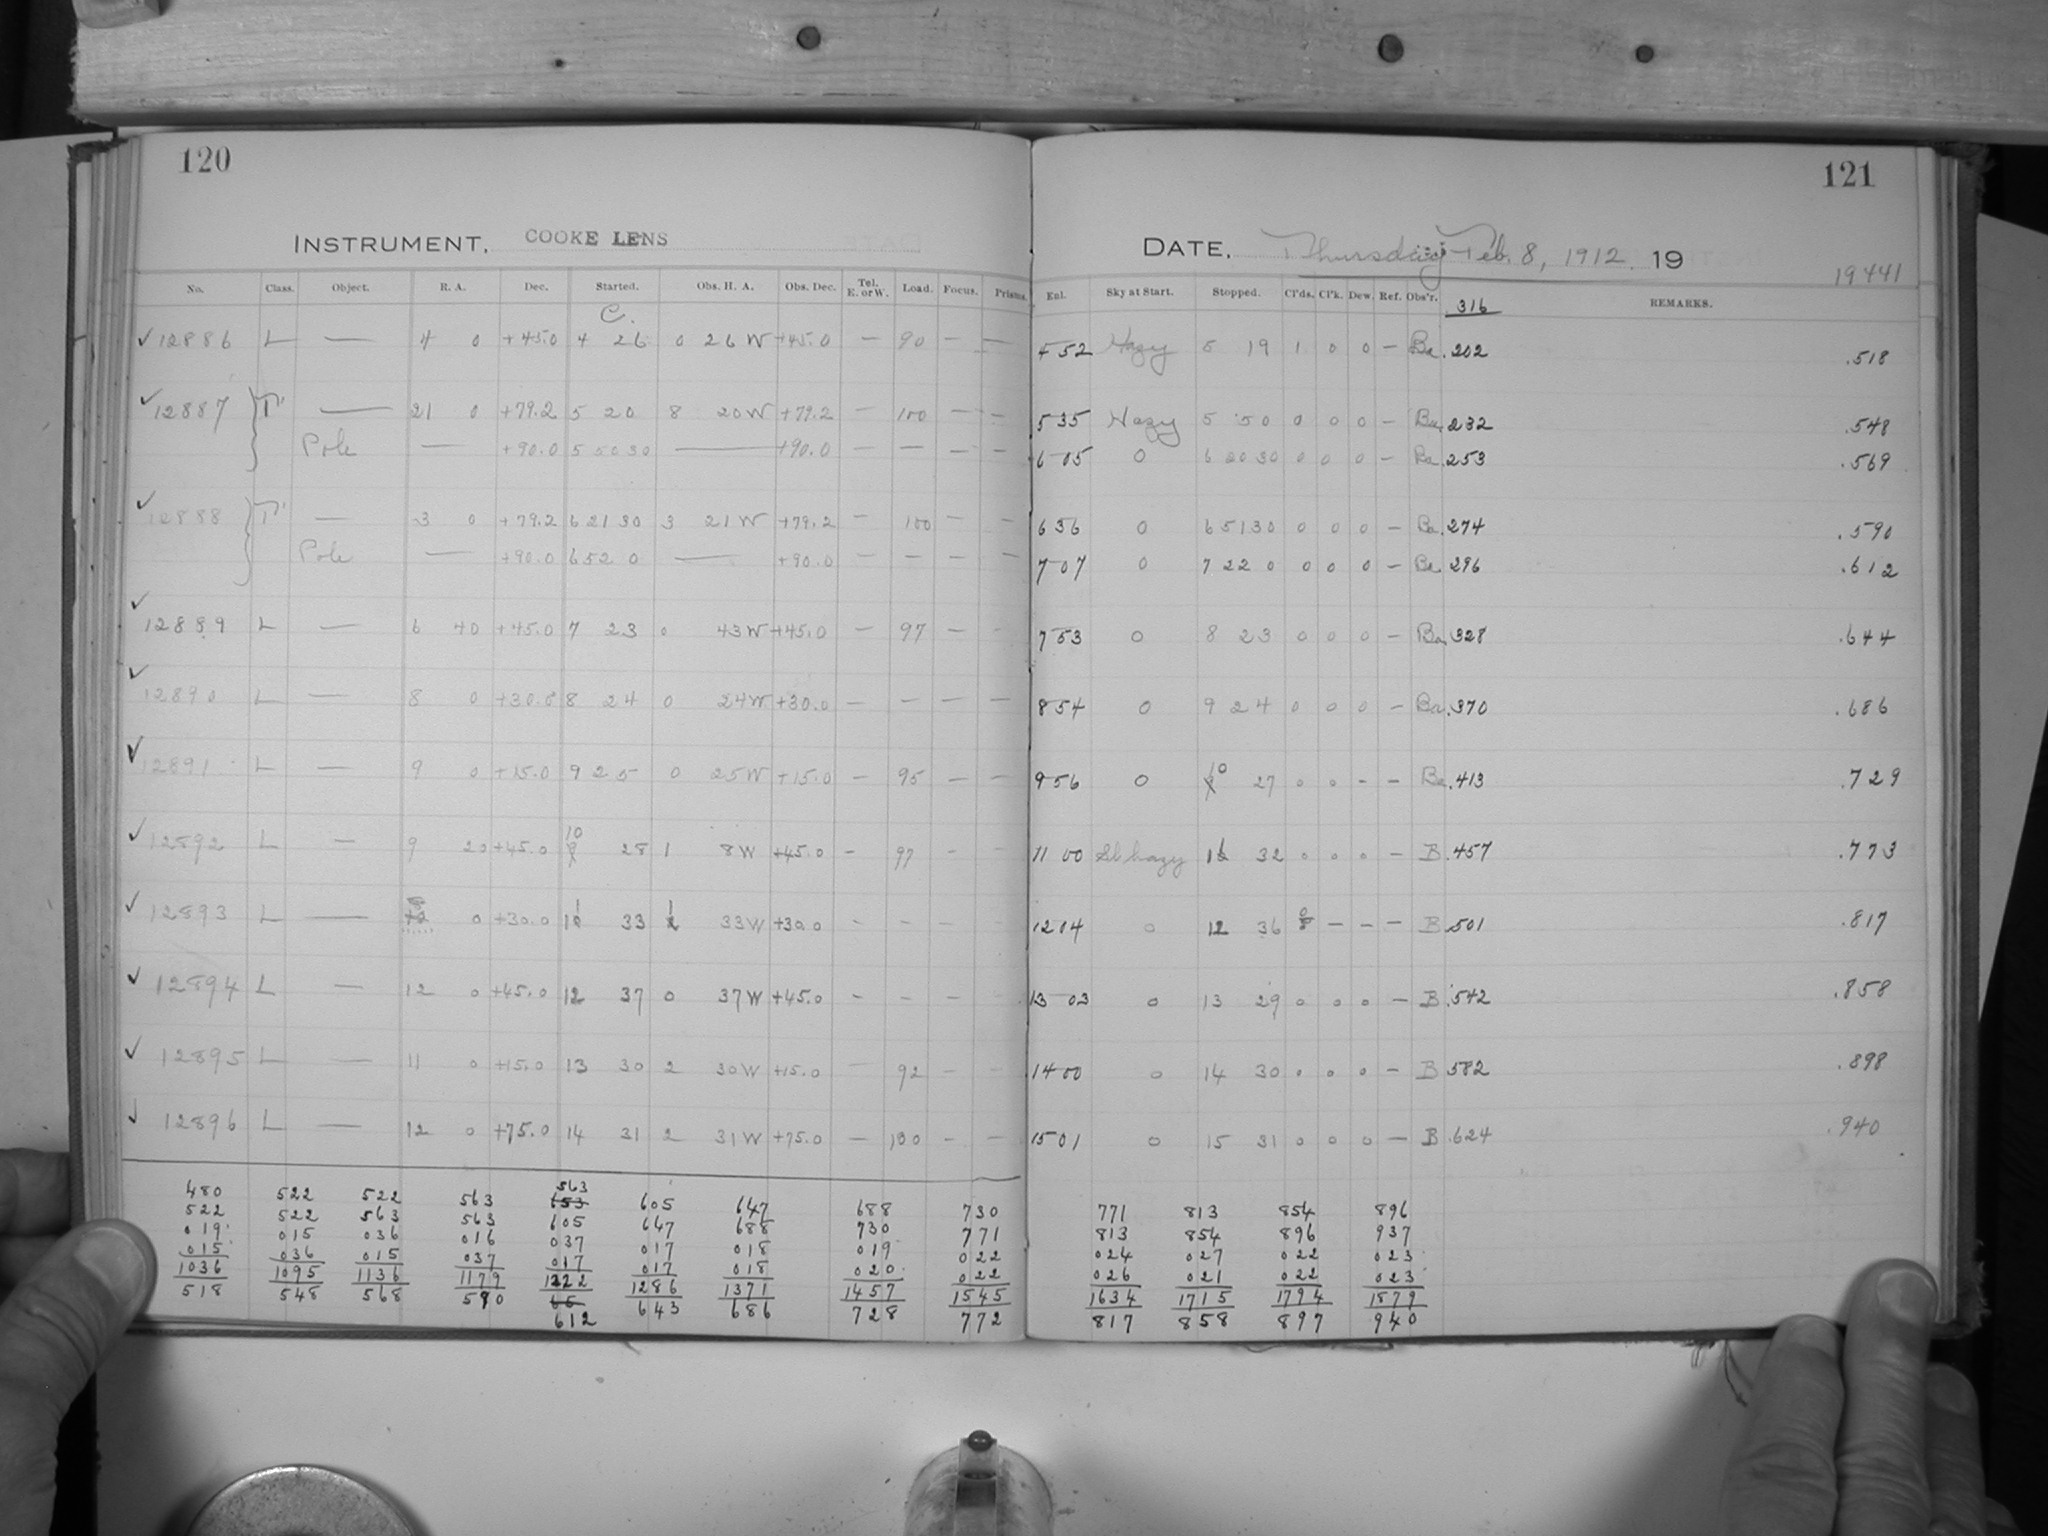 120
INSTRUMENT. COOKE LENS
No. Class. Object. R. A. Dec. Started. Obs. H. A. Obs. Dec. Tel. E. or W. Load. Focus. Prisms.
C.
✓12886 L — 4 0 +45.0 4 26 0 26 W +45.0 — 90 — —
✓12887 } P — 21 0 +79.2 5 20 8 20 W +79.2 — 100 — —
Pole — +90.0 5 50 30 — +90.0 — — — —
✓12888 } P — 3 0 +79.2 6 21 30 3 21 W +79.2 — 100 — —
Pole — +90.0 6 52 0 — +90.0 — — — —
✓12889 L — 6 40 +45.0 7 23 0 43 W +45.0 — 97 — —
✓12890 L — 8 0 +30.0 8 24 0 24 W +30.0 — — — —
✓12891 L — 9 0 +15.0 9 25 0 25 W +15.0 — 95 — —
✓12892 L — 9 20 +45.0 10 28 1 8 W +45.0 — 97 — —
✓12893 L — 0 +30.0 11 33 1 33 W +30.0 — — — —
✓12894 L — 12 0 +45.0 12 37 0 37 W +45.0 — — — —
✓12895 L — 11 0 +15.0 13 30 2 30 W +15.0 — 92 — —
✓12896 L — 12 0 +75.0 14 31 2 31 W +75.0 — 100 — —
563
480 522 522 563 653 605 647 688 730
522 522 563 563 605 647 688 730 771
019 015 036 016 037 017 018 019 022
015 036 015 037 017 017 018 020 022
1036 1095 1136 1179 1222 1286 1371 1457 1545
518 548 568 590 65 643 686 728 772
612
121
DATE. Thursday Feb. 8, 1912 19
19441
Enl. Sky at Start. Stopped. Cl'ds. Cl'k. Dew. Ref. Obs'r. 316 REMARKS.
4 52 Hazy 5 19 1 0 0 — Ba .202 .518
5 35 Hazy 5 50 0 0 0 — Ba .232 .548
6 05 0 6 20 30 0 0 0 — Ba .253 .569
6 36 0 6 51 30 0 0 0 — Ba .274 .590
7 07 0 7 22 0 0 0 0 — Ba .296 .612
7 53 0 8 23 0 0 0 — Ba .328 .644
8 54 0 9 24 0 0 0 — Ba .370 .686
9 56 0 10 27 0 0 — — Ba .413 .729
11 00 Sl hazy 11 32 0 0 0 — B .457 .773
12 04 0 12 36 0 — — — B .501 .817
13 03 0 13 29 0 0 0 — B .542 .858
14 00 0 14 30 0 0 0 — B .582 .898
15 01 0 15 31 0 0 0 — B .624 .940
771 813 854 896
813 854 896 937
024 027 022 023
026 021 022 023
1634 1715 1794 1879
817 858 897 940